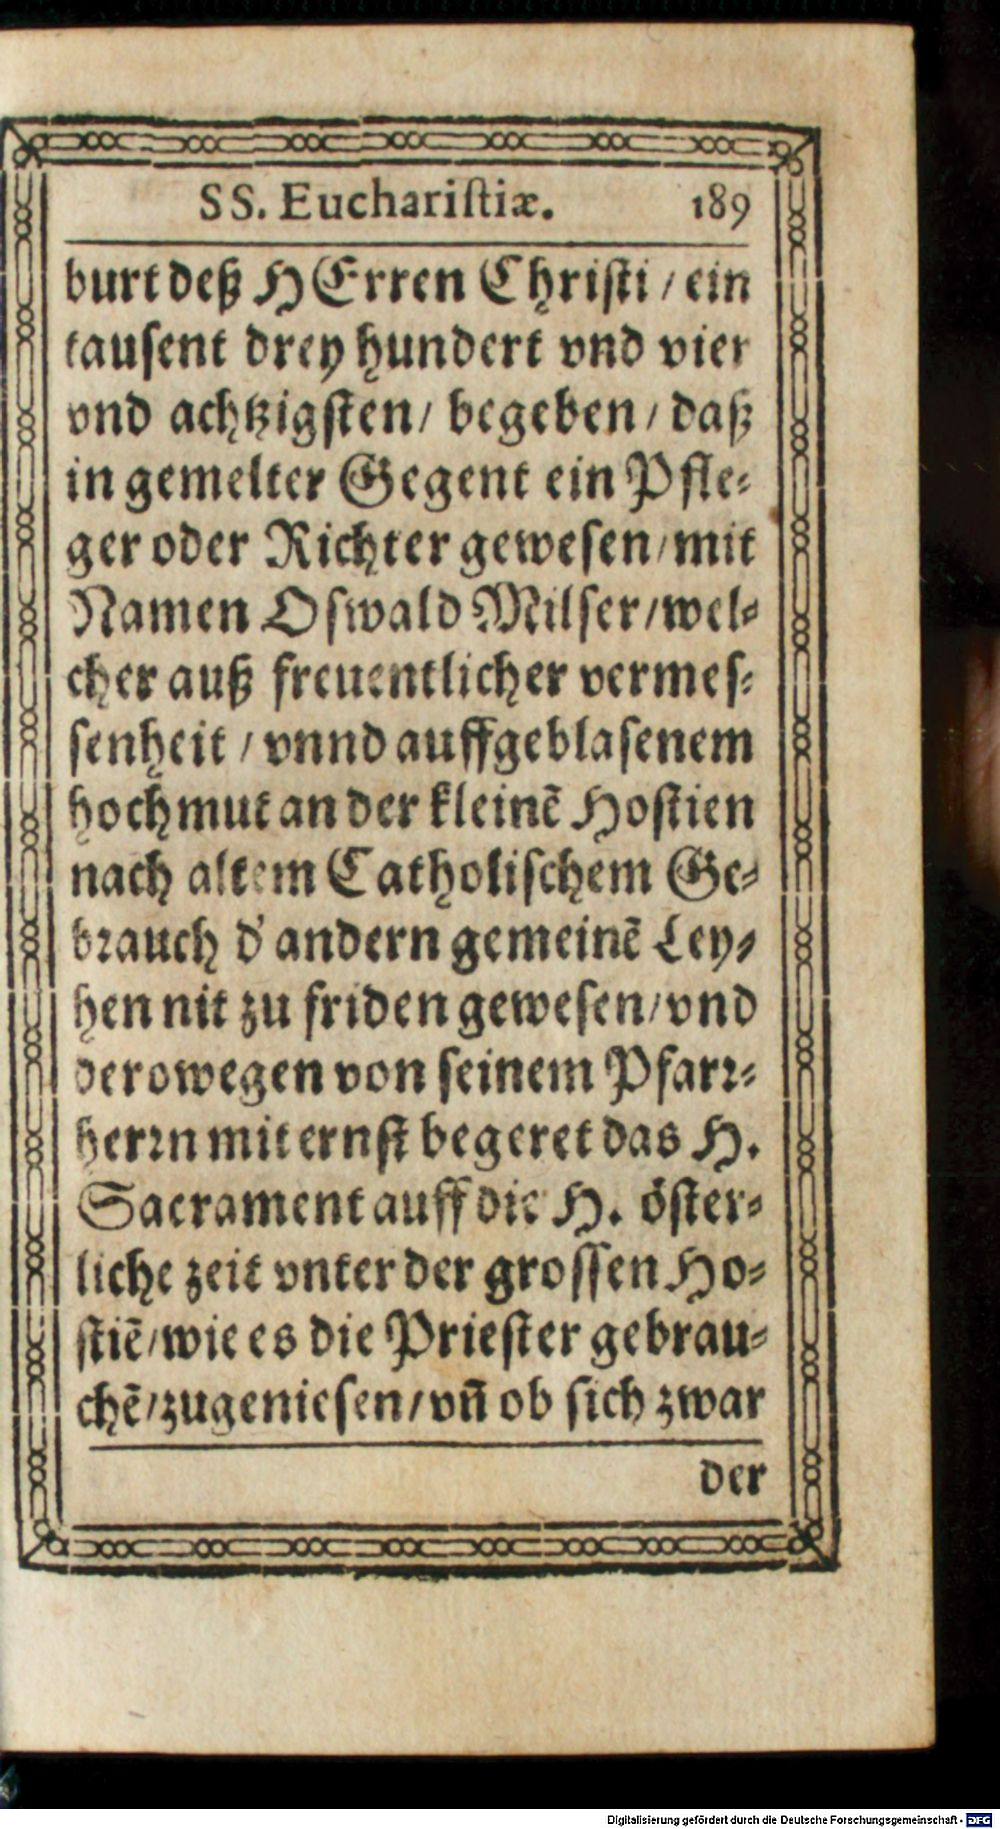 SS. Euchariſtiæ. 189
burt deß HErren Chriſti / ein
tauſent drey hundert vnd vier
vnd achtzigſten / begeben / daß
in gemelter Gegent ein Pfle⸗
ger oder Richter geweſen / mit
Namen Oſwald Milſer / wel⸗
cher auß freuentlicher vermeſ⸗
ſenheit / vnnd auffgeblaſenem
hochmut an der kleinē Hoſtien
nach altem Catholiſchem Ge⸗
bꝛauch d' andern gemeinē Ley⸗
hen nit zu friden geweſen / vnd
derowegen von ſeinem Pfarꝛ⸗
herꝛn mit ernſt begeret das H.
Sacrament auff die H. öſter⸗
liche zeit vnter der groſſen Ho⸗
ſtiē / wie es die Prieſter gebrau⸗
chē / zugenieſen / vn̄ ob ſich zwar
der
Digitalisierung gefördert durch die Deutsche Forschungsgemeinschaft - DFG